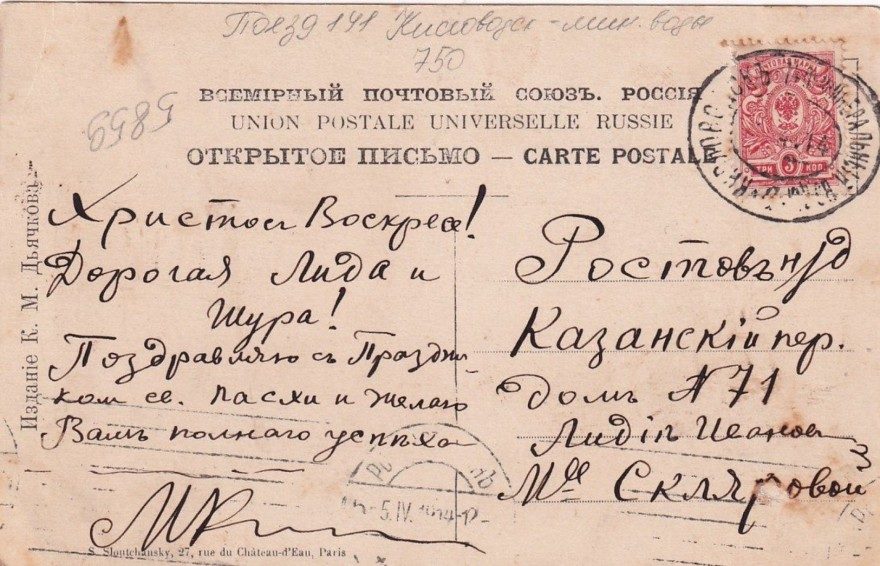 Поезд 141 Кисловодск - мин. воды
750
5859
ВСЕМІРНЫЙ ПОЧТОВЫЙ СОЮЗЪ. РОССІЯ
UNION POSTALE UNIVERSELLE RUSSIE
ОТКРЫТОЕ ПИСЬМО — CARTE POSTALE
Христосъ Воскресе!
Дорогая Лида и
Шура!
Поздравляю съ Праздни
ком св. пасхи и желаю
Вамъ полнаго успѣха
Ростовъ н/д
Казанскій пер.
домъ N 71
Лидіи Ивановн
Mlle Скляровой
5.IV.
Изданіе К. М. Дьячкова
S. Sloutchansky, 27, rue du Château-d'Eau, Paris